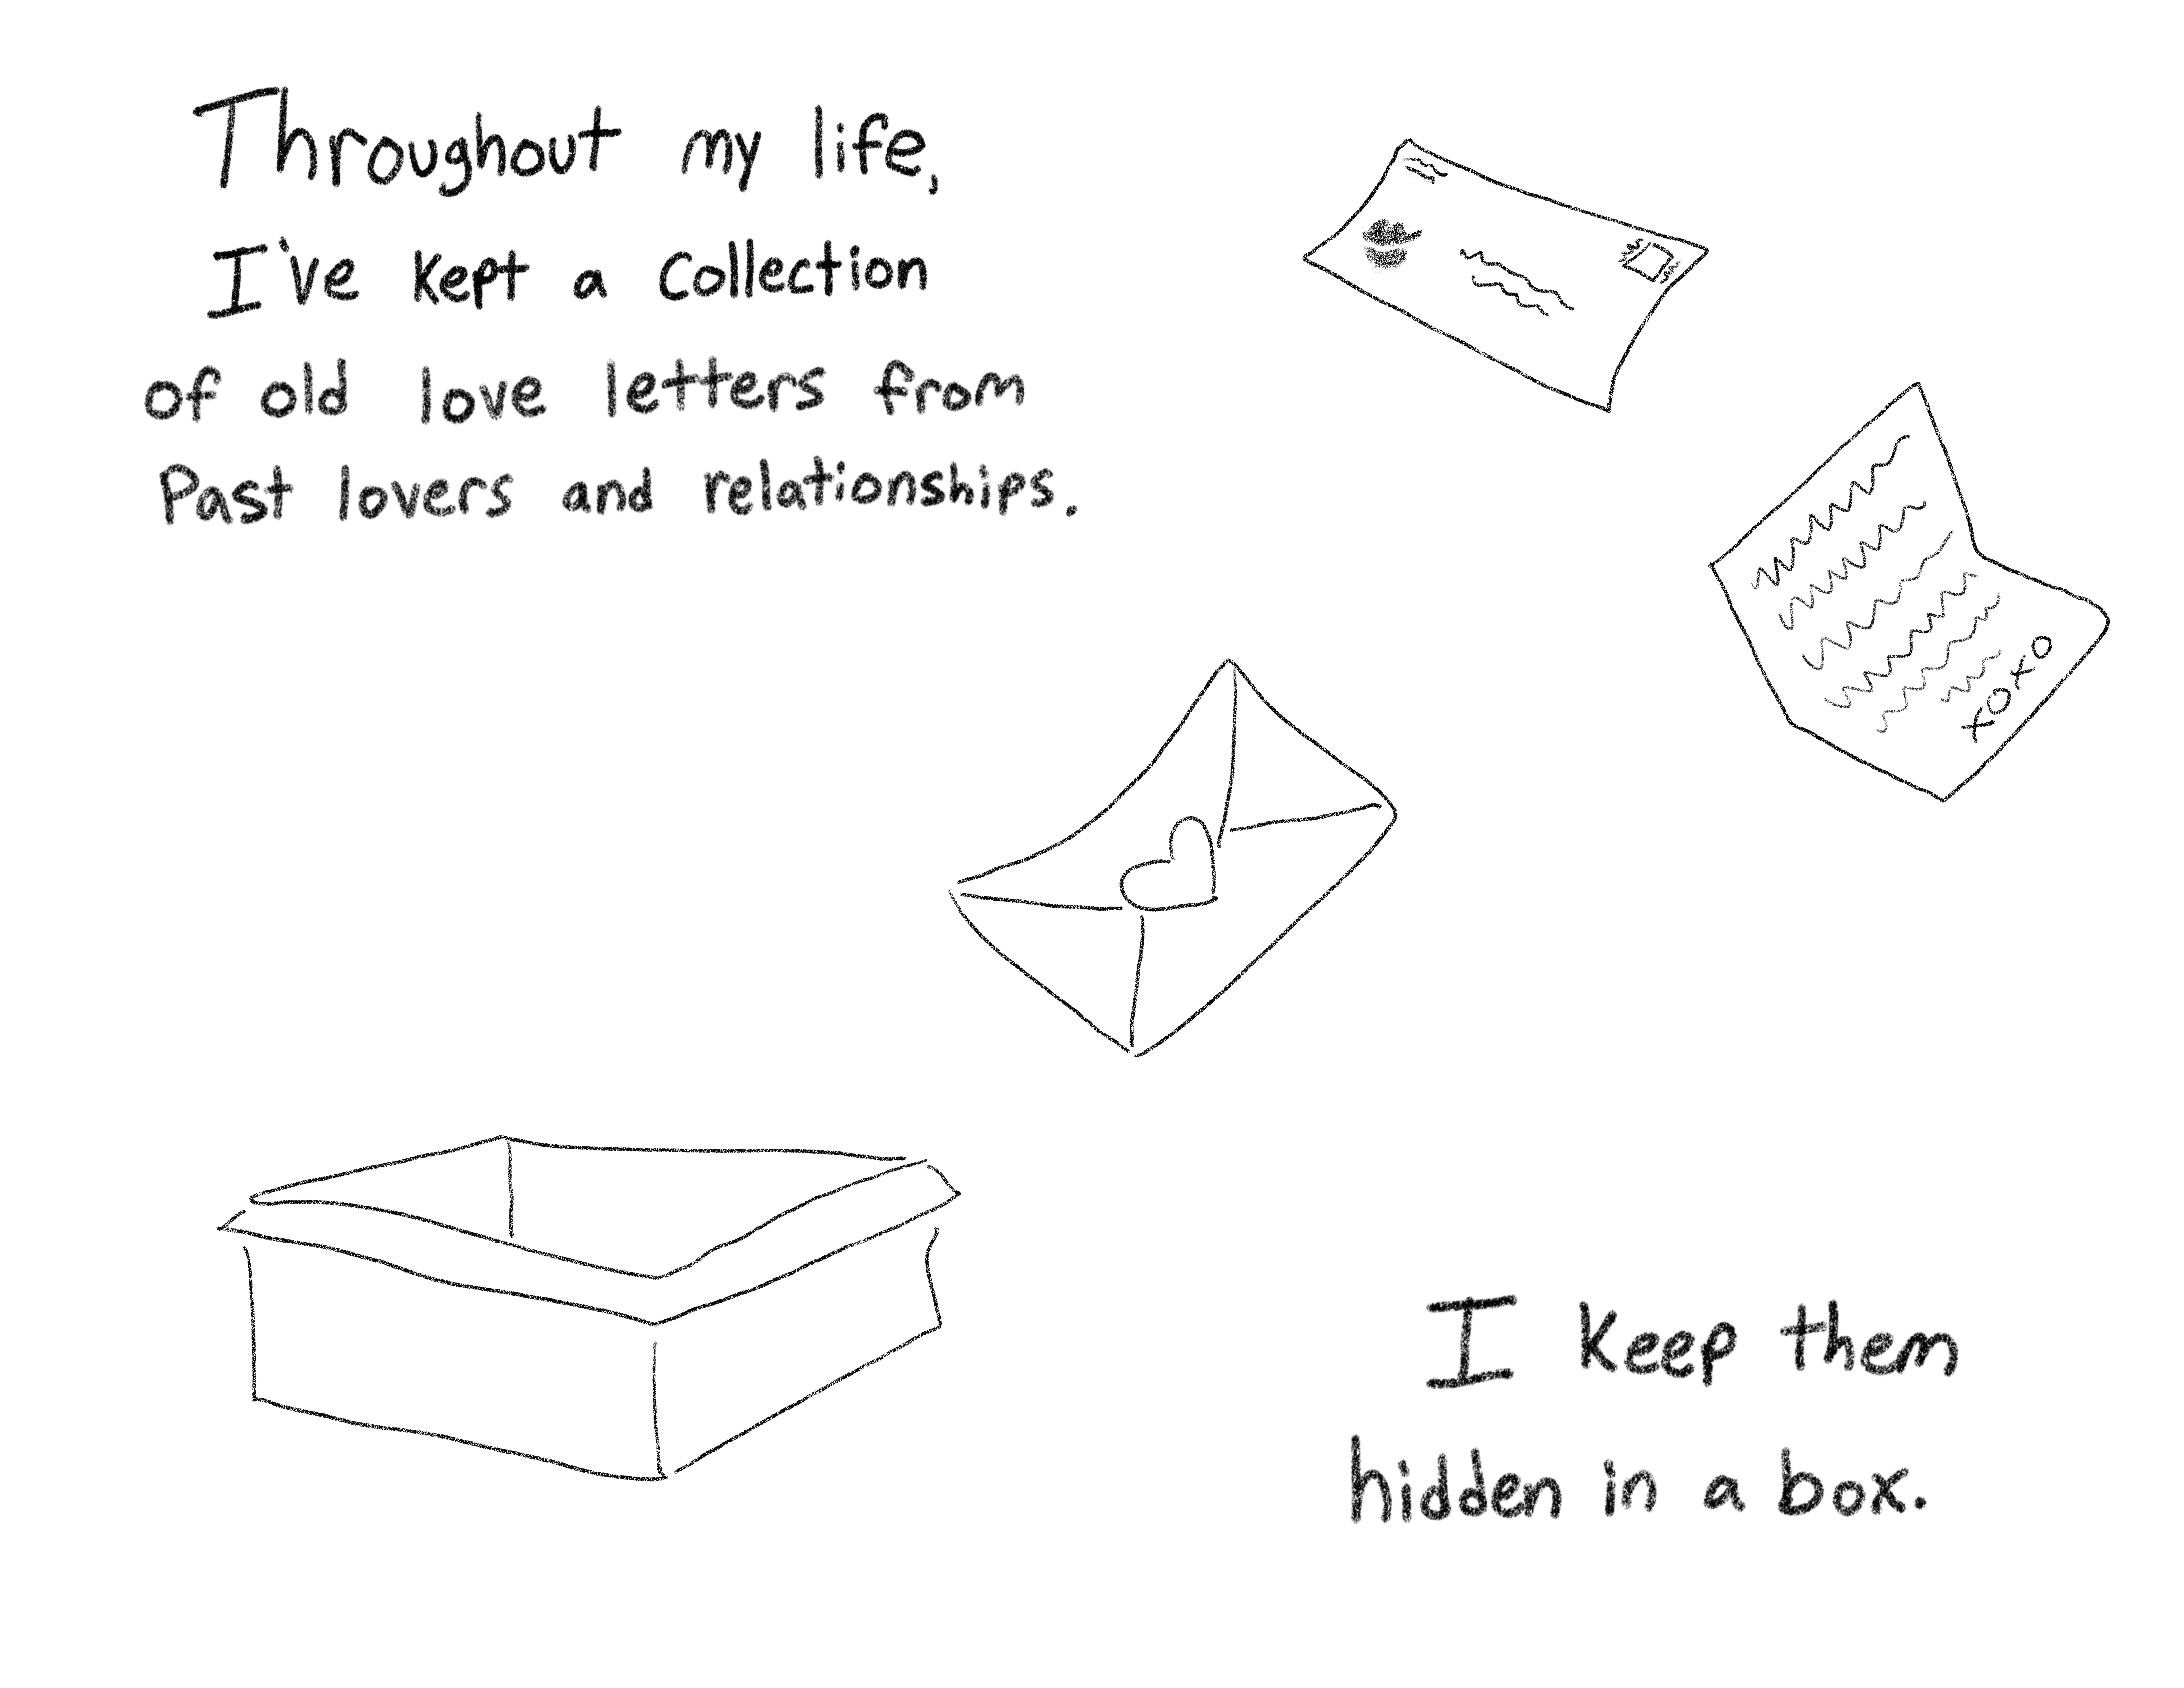 Throughout my life,
I've kept a collection
of old love letters from
Past lovers and relationships.
xoxo
I keep them
hidden in a box.